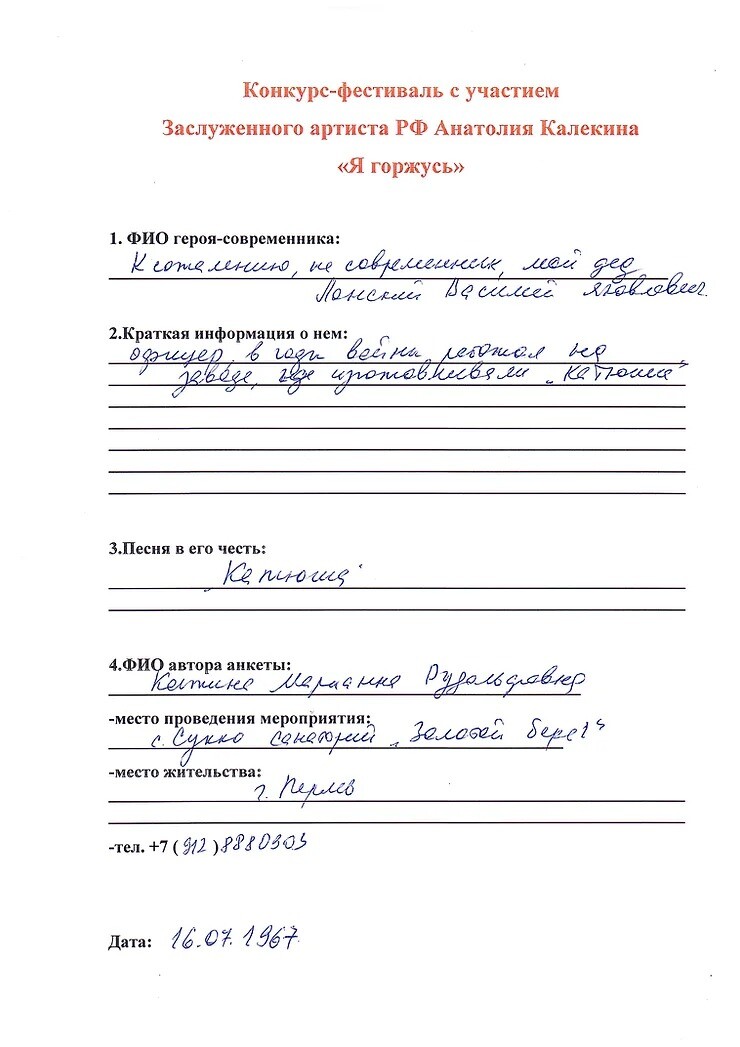 Конкурс-фестиваль с участием
Заслуженного артиста РФ Анатолия Калекина
«Я горжусь»
1. ФИО героя-современника:
К сожалению, не современник, мой дед
Ланский Василий Яковлевич.
2.Краткая информация о нем:
офицер, в годы войны работал на
заводе, где изготавливали „Катюши"
3.Песня в его честь:
„Катюша"
4.ФИО автора анкеты:
Марианна Рудольфовна
-место проведения мероприятия:
с. Сукко санаторий „Золотой берег"
-место жительства:
г. Пермь
-тел. +7 (912) 8880303
Дата: 16.07.1967